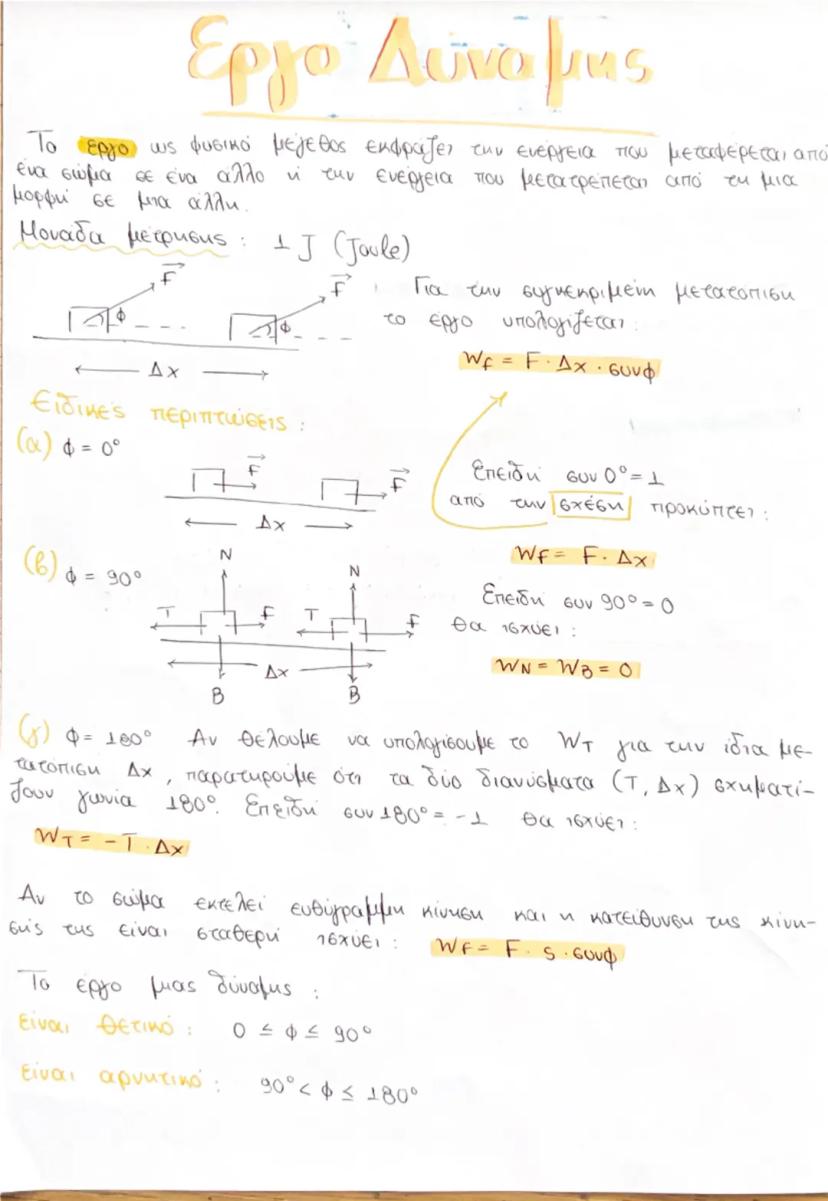 Έργο Δύναμης
Το έργο ως φυσικό μέγεθος εκφράζει την ενέργεια που μεταφέρεται από
ένα σώμα σε ένα άλλο ή την ενέργεια που μετατρέπεται από τη μια
μορφή σε μια άλλη.
Μονάδα μέτρησης : 1 J (Joule)
F F
φ φ
Δx
Για την συγκεκριμένη μετατόπιση
το έργο υπολογίζεται:
WF = F · Δx · συνφ
Ειδικές περιπτώσεις :
(α) φ = 0°
F F
Δx
Επειδή συν 0° = 1
από την σχέση προκύπτει :
WF = F · Δx
(β) φ = 90°
N N
T F T F
Δx
B B
Επειδή συν 90° = 0
θα ισχύει :
WN = WB = 0
(γ) φ = 180° Αν θέλουμε να υπολογίσουμε το WT για την ίδια με-
τατόπιση Δx , παρατηρούμε ότι τα δύο διανύσματα (T, Δx) σχηματί-
ζουν γωνία 180°. Επειδή συν 180° = -1 θα ισχύει :
WT = - T · Δx
Αν το σώμα εκτελεί ευθύγραμμη κίνηση και η κατεύθυνση της κίνη-
σής της είναι σταθερή ισχύει : WF = F · s · συνφ
Το έργο μιας δύναμης :
Είναι θετικό : 0 ≤ φ ≤ 90°
Είναι αρνητικό : 90° < φ ≤ 180°